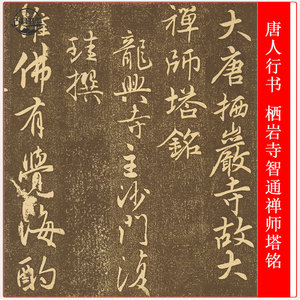 唐人行书 栖岩寺智通禅师塔铭
大唐栖巖寺故大
禪師塔銘
龍興寺主沙門復
珪撰
佛有覺海酌